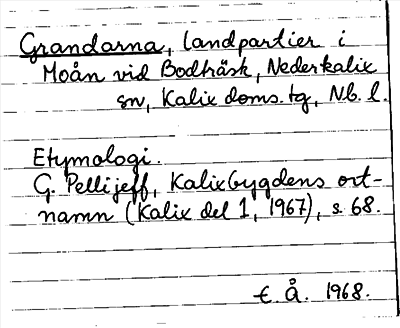 Grandarna, landpartier i
Moån vid Bodträsk, Nederkalix
sn, Kalix doms. tg, Nb. l.
Etymologi.
G. Pellijeff, Kalixbygdens ort-
namn (Kalix del 1, 1967), s. 68.
E. Å. 1968.